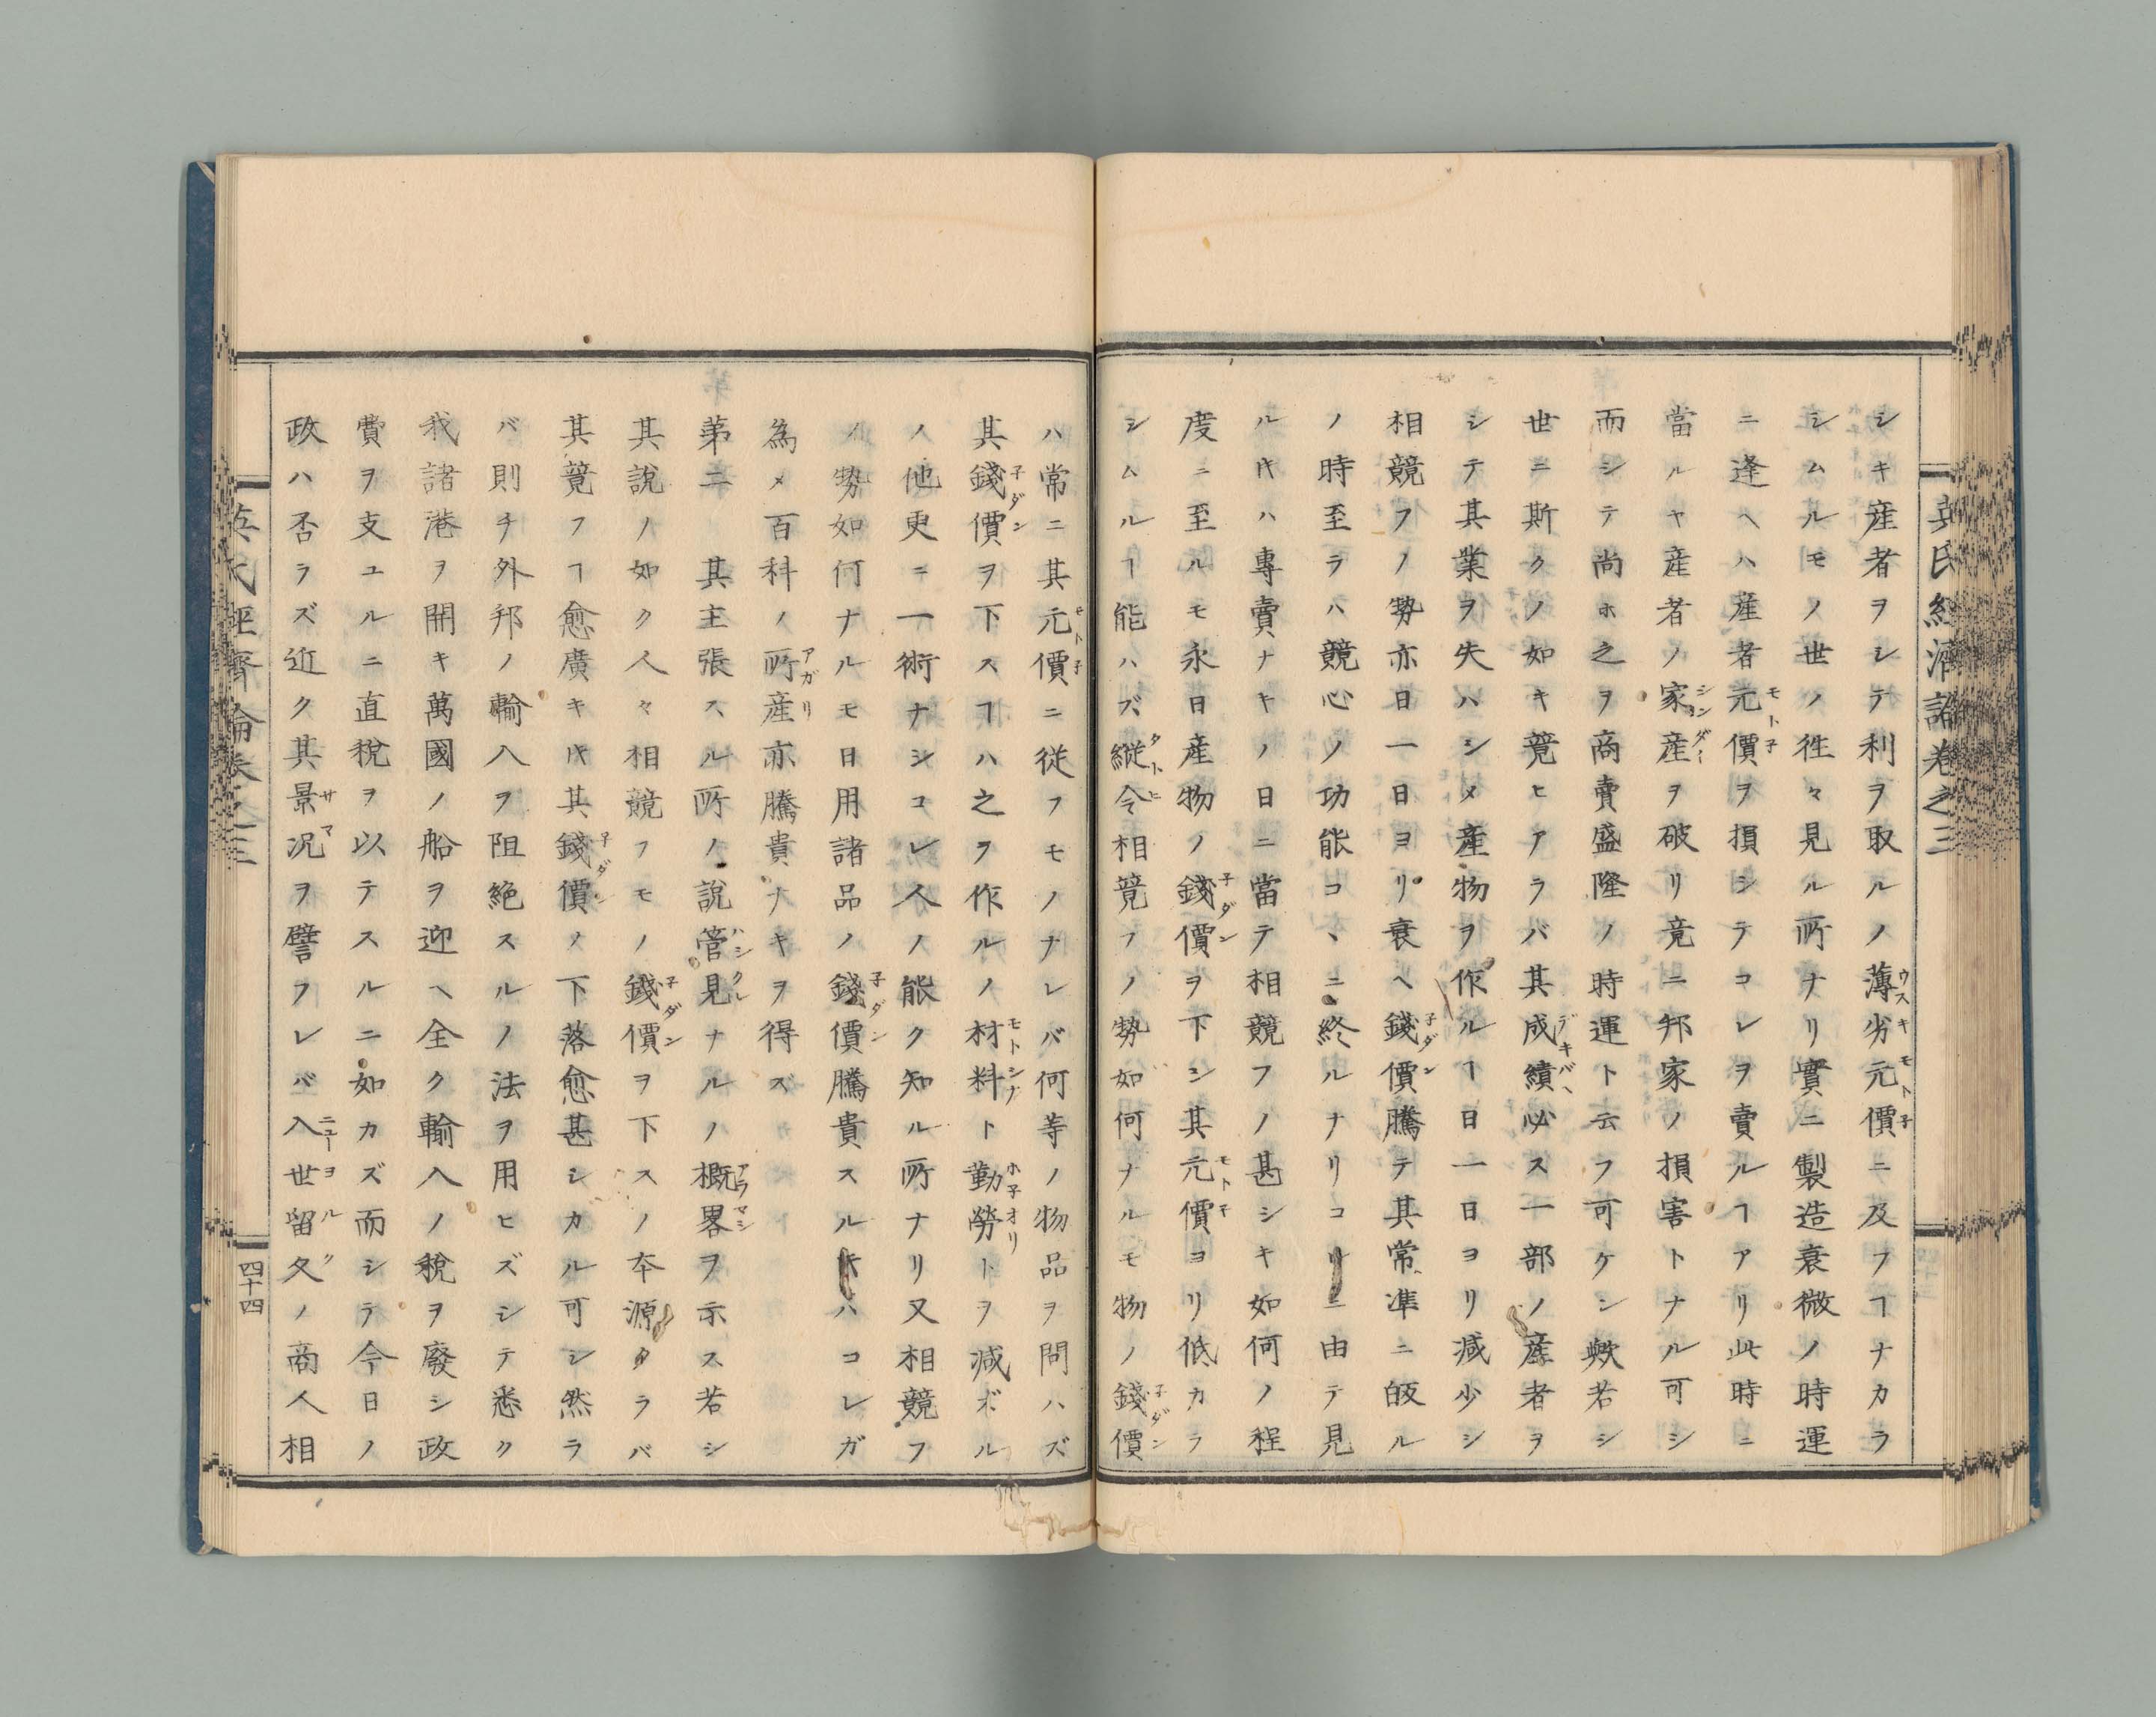 英氏經濟論卷之三
シキ産者ヲシテ利ヲ取ルノ薄劣元價ニ及フヿナカラ
シムルモノ世ノ徃々見ル所ナリ實ニ製造衰微ノ時運
ニ逢ヘハ産者元價ヲ損シテコレヲ賣ルヿアリ此時ニ
當ルヤ産者ノ家産ヲ破リ竟ニ邦家ノ損害トナル可シ
而シテ尚ホ之ヲ商賣盛隆ノ時運ト云フ可ケン歟若シ
世ニ斯クノ如キ競ヒアラバ其成績必ス一部ノ産者ヲ
シテ其業ヲ失ハシメ産物ヲ作ルヿ日一日ヨリ減少シ
相競フノ勢亦日一日ヨリ衰ヘ錢價騰テ其常準ニ皈ル
ノ時至ラハ競心ノ功能コヽニ終ルナリコリニ由テ見
ルトキハ專賣ナキノ日ニ當テ相競フノ甚シキ如何ノ程
度ニ至ルモ永日産物ノ錢價ヲ下シ其元價ヨリ低カラ
シムルヿ能ハズ縱令相競フノ勢如何ナルモ物ノ錢價
ハ常ニ其元價ニ從フモノナレバ何等ノ物品ヲ問ハズ
其錢價ヲ下スヿハ之ヲ作ルノ材料ト勤勞トヲ減ズル
ノ他更ニ一術ナシコレ人ノ能ク知ル所ナリ又相競フ
ノ勢如何ナルモ日用諸品ノ錢價騰貴スルトキハコレガ
為メ百科ノ所産亦騰貴ナキヲ得ズ
第二 其主張スル所ノ說管見ナルノ概畧ヲ示ス若シ
其說ノ如ク人々相競フモノ錢價ヲ下スノ本源タラバ
其競フヿ愈廣キトキ其錢價ノ下落愈甚シカル可シ然ラ
バ則チ外邦ノ輸入ヲ阻絶スルノ法ヲ用ヒズシテ悉ク
我諸港ヲ開キ萬國ノ船ヲ迎ヘ全ク輸入ノ稅ヲ廢シ政
費ヲ支ユルニ直稅ヲ以テスルニ如カズ而シテ今日ノ
政ハ否ラズ近ク其景況ヲ譬フレバ入世留久ノ商人相
英氏經濟論卷之三
四十四